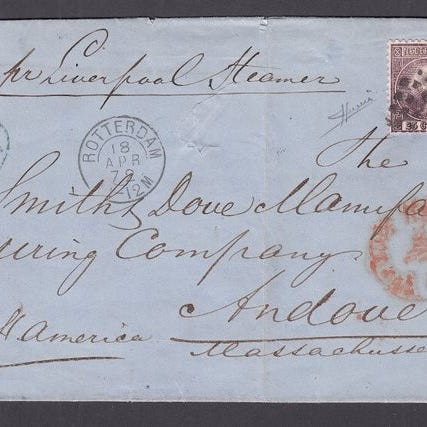 pr Liverpool Steamer
ROTTERDAM
18
APR
12M
The
Smith & Dove Manufa
uring Company
Andove
N America
Massachuse